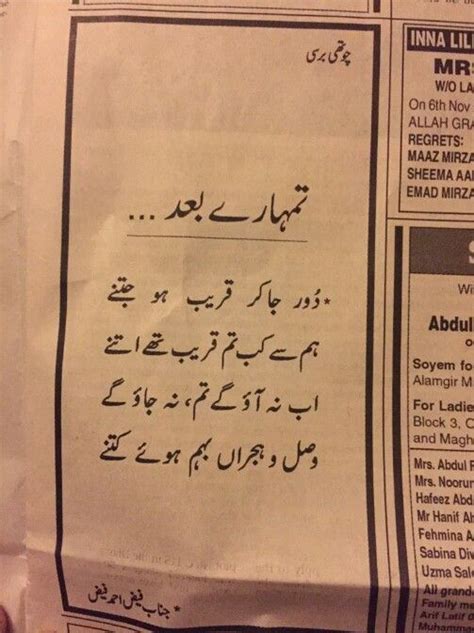 چوتھی برسی
تمہارے بعد ...
* دُور جا کر قریب ہو جتنے
ہم سے کب تم قریب تھے اتنے
اب نہ آؤ گے تم، نہ جاؤ گے
وصل و ہجراں بہم ہوئے کتنے
* جناب فیض احمد فیض
INNA LIL
MRS
W/O LA
On 6th Nov
ALLAH GRA
REGRETS:
MAAZ MIRZA
SHEEMA AA
EMAD MIRZA
S
Wi
Abdul
Soyem fo
Alamgir M
For Ladie
Block 3, C
and Magh
Mrs. Abdul R
Mrs. Noorun
Hafeez Abd
Mr Hanif Ab
Fehmina A
Sabina Div
Uzma Sale
All grand
Family me
Arif Latif G
Muhammad